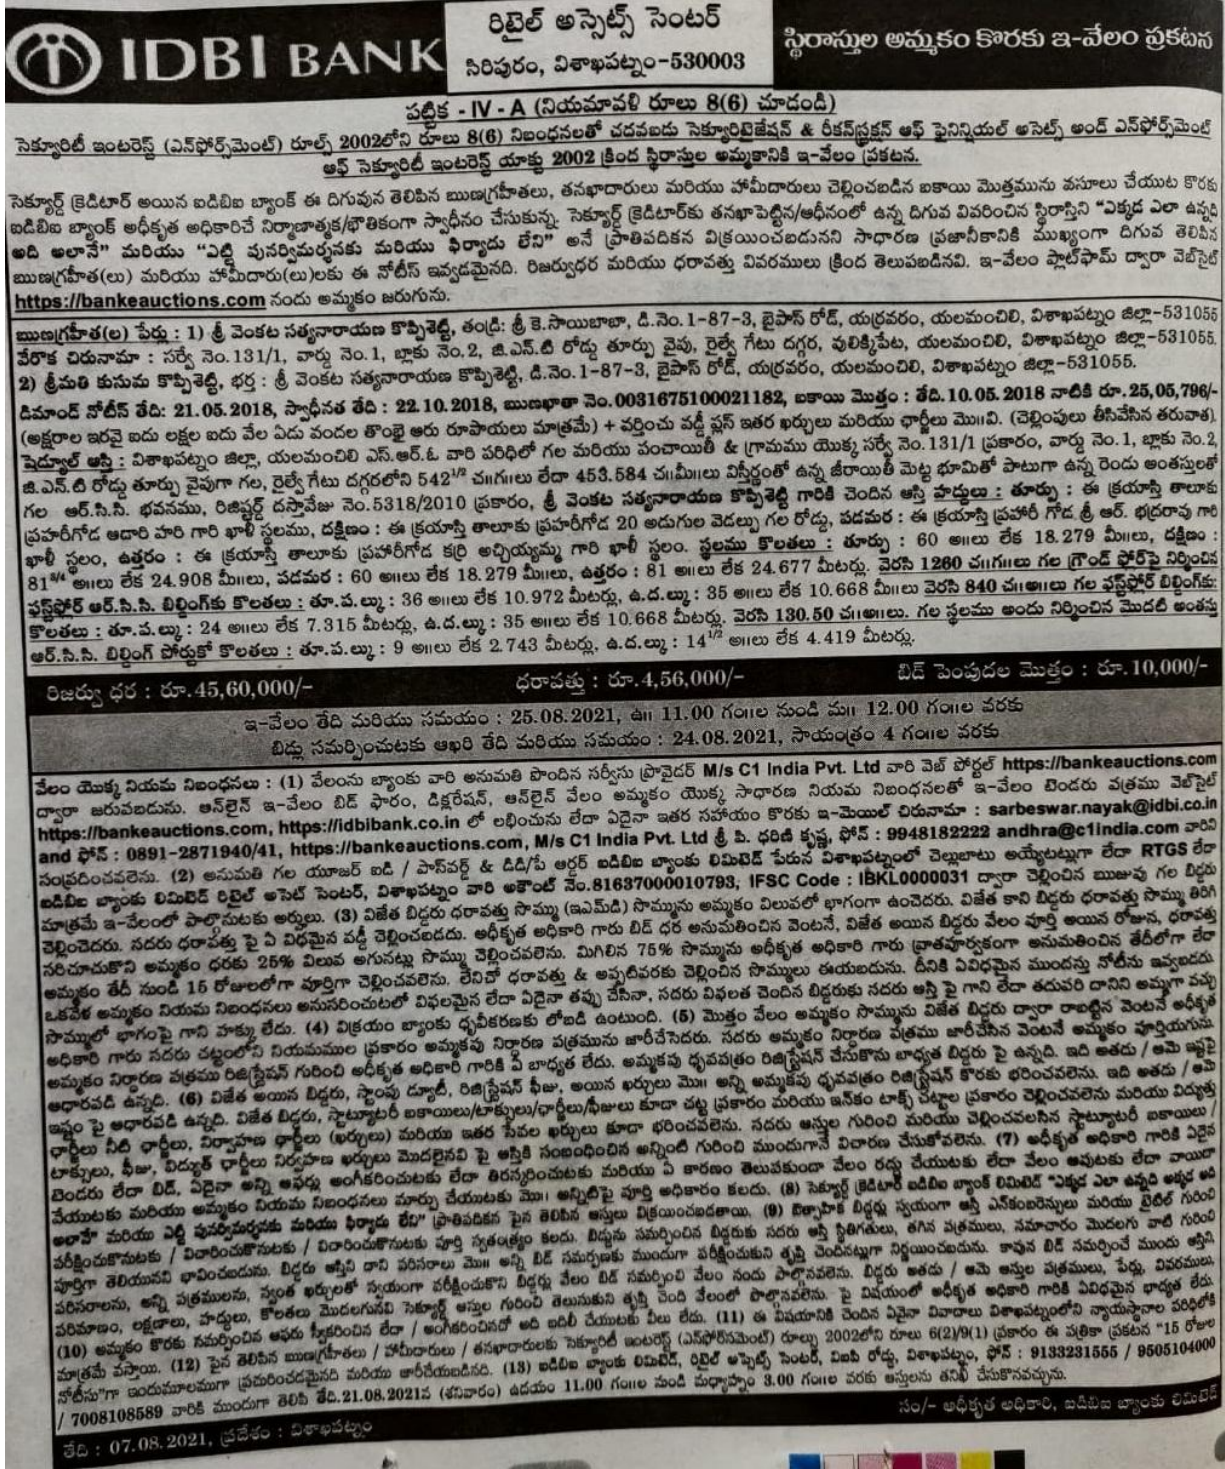 IDBI BANK
రిటైల్ అస్సెట్స్ సెంటర్
సిరిపురం, విశాఖపట్నం-530003
స్థిరాస్తుల అమ్మకం కొరకు ఇ-వేలం ప్రకటన
పట్టిక - IV - A (నియమావళి రూలు 8(6) చూడండి)
సెక్యూరిటీ ఇంటరెస్ట్ (ఎన్‌ఫోర్స్‌మెంట్) రూల్స్ 2002లోని రూలు 8(6) నిబంధనలతో చదవబడు సెక్యూరిటైజేషన్ & రీకన్‌స్ట్రక్షన్ ఆఫ్ ఫైనిన్షియల్ అసెట్స్ అండ్ ఎన్‌ఫోర్స్‌మెంట్
ఆఫ్ సెక్యూరిటీ ఇంటరెస్ట్ యాక్టు 2002 క్రింద స్థిరాస్తుల అమ్మకానికి ఇ-వేలం ప్రకటన.
సెక్యూర్డ్ క్రెడిటార్ అయిన ఐడిబిఐ బ్యాంక్ ఈ దిగువున తెలిపిన ఋణగ్రహీతలు, తనఖాదారులు మరియు హామీదారులు చెల్లించబడిన బకాయి మొత్తమును వసూలు చేయుట కొరకు
ఐడిబిఐ బ్యాంక్ అధీకృత అధికారిచే నిర్మాణాత్మక/భౌతికంగా స్వాధీనం చేసుకున్న. సెక్యూర్డ్ క్రెడిటార్‌కు తనఖాపెట్టిన/ఆధీనంలో ఉన్న దిగువ వివరించిన స్థిరాస్తిని "ఎక్కడ ఎలా ఉన్నది
అది అలానే" మరియు "ఎట్టి పునర్విమర్శనకు మరియు ఫిర్యాదు లేని" అనే ప్రాతిపదికన విక్రయించబడునని సాధారణ ప్రజానీకానికి ముఖ్యంగా దిగువ తెలిపిన
ఋణగ్రహీత(లు) మరియు హామీదారు(లు)లకు ఈ నోటీస్ ఇవ్వడమైనది. రిజర్వుధర మరియు ధరావత్తు వివరములు క్రింద తెలుపబడినవి. ఇ-వేలం ప్లాట్‌ఫామ్ ద్వారా వెబ్‌సైట్
https://bankeauctions.com నందు అమ్మకం జరుగును.
ఋణగ్రహీత(ల) పేర్లు : 1) శ్రీ వెంకట సత్యనారాయణ కొప్పిశెట్టి, తండ్రి: శ్రీ కె.సాయిబాబా, డి.నెం.1-87-3, బైపాస్ రోడ్, యర్రవరం, యలమంచిలి, విశాఖపట్నం జిల్లా-531055
వేరొక చిరునామా : సర్వే నెం.131/1, వార్డు నెం.1, బ్లాకు నెం.2, జి.ఎన్.టి రోడ్డు తూర్పు వైపు, రైల్వే గేటు దగ్గర, పులిక్కిపేట, యలమంచిలి, విశాఖపట్నం జిల్లా-531055.
2) శ్రీమతి కుసుమ కొప్పిశెట్టి, భర్త : శ్రీ వెంకట సత్యనారాయణ కొప్పిశెట్టి, డి.నెం.1-87-3, బైపాస్ రోడ్, యర్రవరం, యలమంచిలి, విశాఖపట్నం జిల్లా-531055.
డిమాండ్ నోటీస్ తేది: 21.05.2018, స్వాధీనత తేది : 22.10.2018, ఋణఖాతా నెం.0031675100021182, బకాయి మొత్తం : తేది.10.05.2018 నాటికి రూ.25,05,796/-
(అక్షరాల ఇరవై ఐదు లక్షల ఐదు వేల ఏడు వందల తొంభై ఆరు రూపాయలు మాత్రమే) + వర్తించు వడ్డీ ప్లస్ ఇతర ఖర్చులు మరియు ఛార్జీలు మొ॥వి. (చెల్లింపులు తీసివేసిన తరువాత).
షెడ్యూల్ ఆస్తి : విశాఖపట్నం జిల్లా, యలమంచిలి ఎస్.ఆర్.ఓ వారి పరిధిలో గల మరియు పంచాయితీ & గ్రామము యొక్క సర్వే నెం.131/1 ప్రకారం, వార్డు నెం.1, బ్లాకు నెం.2,
జి.ఎన్.టి రోడ్డు తూర్పు వైపుగా గల, రైల్వే గేటు దగ్గరలోని 542 1/2 చ॥గ॥లు లేదా 453.584 చ॥మీ॥లు విస్తీర్ణంతో ఉన్న జీరాయితీ మెట్ట భూమితో పాటుగా ఉన్న రెండు అంతస్తులతో
గల ఆర్.సి.సి. భవనము, రిజిష్టర్డ్ దస్తావేజు నెం.5318/2010 ప్రకారం, శ్రీ వెంకట సత్యనారాయణ కొప్పిశెట్టి గారికి చెందిన ఆస్తి హద్దులు : తూర్పు : ఈ క్రయాస్తి తాలూకు
ప్రహరీగోడ ఆదారి హరి గారి ఖాళీ స్థలము, దక్షిణం : ఈ క్రయాస్తి తాలూకు ప్రహరీగోడ 20 అడుగుల వెడల్పు గల రోడ్డు, పడమర : ఈ క్రయాస్తి ప్రహారీ గోడ శ్రీ ఆర్. భద్రరావు గారి
ఖాళీ స్థలం, ఉత్తరం : ఈ క్రయాస్తి తాలూకు ప్రహరీగోడ కర్రి అచ్చియ్యమ్మ గారి ఖాళీ స్థలం. స్థలము కొలతలు : తూర్పు : 60 అ॥లు లేక 18.279 మీ॥లు, దక్షిణం :
81 3/4 అ॥లు లేక 24.908 మీ॥లు, పడమర : 60 అ॥లు లేక 18.279 మీ॥లు, ఉత్తరం : 81 అ॥లు లేక 24.677 మీటర్లు. వెరసి 1260 చ॥గ॥లు గల గ్రౌండ్ ఫ్లోర్‌పై నిర్మించిన
ఫస్ట్‌ఫ్లోర్ ఆర్.సి.సి. బిల్డింగ్‌కు కొలతలు : తూ.ప.ల్కు : 36 అ॥లు లేక 10.972 మీటర్లు, ఉ.ద.ల్కు : 35 అ॥లు లేక 10.668 మీ॥లు వెరసి 840 చ॥అ॥లు గల ఫస్ట్‌ఫ్లోర్ బిల్డింగ్‌కు:
కొలతలు : తూ.ప.ల్కు : 24 అ॥లు లేక 7.315 మీటర్లు, ఉ.ద.ల్కు : 35 అ॥లు లేక 10.668 మీటర్లు. వెరసి 130.50 చ॥అ॥లు. గల స్థలము అందు నిర్మించిన మొదటి అంతస్తు
ఆర్.సి.సి. బిల్డింగ్ పోర్టుకో కొలతలు : తూ.ప.ల్కు : 9 అ॥లు లేక 2.743 మీటర్లు, ఉ.ద.ల్కు : 14 1/2 అ॥లు లేక 4.419 మీటర్లు.
రిజర్వు ధర : రూ.45,60,000/- ధరావత్తు : రూ.4,56,000/- బిడ్ పెంపుదల మొత్తం : రూ.10,000/-
ఇ-వేలం తేది మరియు సమయం : 25.08.2021, ఉ॥ 11.00 గం॥ల నుండి మ॥ 12.00 గం॥ల వరకు
బిడ్లు సమర్పించుటకు ఆఖరి తేది మరియు సమయం : 24.08.2021, సాయంత్రం 4 గం॥ల వరకు
వేలం యొక్క నియమ నిబంధనలు : (1) వేలంను బ్యాంకు వారి అనుమతి పొందిన సర్వీసు ప్రొవైడర్ M/s C1 India Pvt. Ltd వారి వెబ్ పోర్టల్ https://bankeauctions.com
ద్వారా జరుపబడును. ఆన్‌లైన్ ఇ-వేలం బిడ్ ఫారం, డిక్లరేషన్, ఆన్‌లైన్ వేలం అమ్మకం యొక్క సాధారణ నియమ నిబంధనలతో ఇ-వేలం టెండరు పత్రము వెబ్‌సైట్
https://bankeauctions.com, https://idbibank.co.in లో లభించును లేదా ఏదైనా ఇతర సహాయం కొరకు ఇ-మెయిల్ చిరునామా : sarbeswar.nayak@idbi.co.in
and ఫోన్ : 0891-2871940/41, https://bankeauctions.com, M/s C1 India Pvt. Ltd శ్రీ పి. ధరణి కృష్ణ, ఫోన్ : 9948182222 andhra@c1india.com వారిని
సంప్రదించవలెను. (2) అనుమతి గల యూజర్ ఐడి / పాస్‌వర్డ్ & డిడి/పే ఆర్డర్ ఐడిబిఐ బ్యాంకు లిమిటెడ్ పేరున విశాఖపట్నంలో చెల్లుబాటు అయ్యేటట్లుగా లేదా RTGS లేదా
ఐడిబిఐ బ్యాంకు లిమిటెడ్ రిటైల్ అసెట్ సెంటర్, విశాఖపట్నం వారి అకౌంట్ నెం.81637000010793, IFSC Code : IBKL0000031 ద్వారా చెల్లించిన ఋజువు గల బిడ్డరు
మాత్రమే ఇ-వేలంలో పాల్గొనుటకు అర్హులు. (3) విజేత బిడ్డరు ధరావత్తు సొమ్ము (ఇఎమ్‌డి) సొమ్మును అమ్మకం విలువలో భాగంగా ఉంచెదరు. విజేత కాని బిడ్డరు ధరావత్తు సొమ్ము తిరిగి
చెల్లించెదరు. సదరు ధరావత్తు పై ఏ విధమైన వడ్డీ చెల్లించబడదు. అధీకృత అధికారి గారు బిడ్ ధర అనుమతించిన వెంటనే, విజేత అయిన బిడ్డరు వేలం పూర్తి అయిన రోజున, ధరావత్తు
సరిచూచుకొని అమ్మకం ధరకు 25% విలువ అగునట్లు సొమ్ము చెల్లించవలెను. మిగిలిన 75% సొమ్మును అధీకృత అధికారి గారు వ్రాతపూర్వకంగా అనుమతించిన తేదీలోగా లేదా
అమ్మకం తేదీ నుండి 15 రోజులలోగా పూర్తిగా చెల్లించవలెను. లేనిచో ధరావత్తు & అప్పటివరకు చెల్లించిన సొమ్ములు ఈయబడును. దీనికి ఏవిధమైన ముందస్తు నోటీసు ఇవ్వబడదు
ఒకవేళ అమ్మకం నియమ నిబంధనలు అనుసరించుటలో విఫలమైన లేదా ఏదైనా తప్పు చేసినా, సదరు విఫలత చెందిన బిడ్డరుకు సదరు ఆస్తి పై గాని లేదా తదుపరి దానిని అమ్మగా వచ్చు
సొమ్ములో భాగంపై గాని హక్కు లేదు. (4) విక్రయం బ్యాంకు ధృవీకరణకు లోబడి ఉంటుంది. (5) మొత్తం వేలం అమ్మకం సొమ్మును విజేత బిడ్డరు ద్వారా రాబట్టిన వెంటనే అధీకృత
అధికారి గారు సదరు చట్టంలోని నియమముల ప్రకారం అమ్మకపు నిర్ధారణ పత్రమును జారీచేసెదరు. సదరు అమ్మకం నిర్ధారణ పత్రము జారీచేసిన వెంటనే అమ్మకం పూర్తియగును.
అమ్మకం నిర్ధారణ పత్రము రిజిస్ట్రేషన్ గురించి అధీకృత అధికారి గారికి ఏ బాధ్యత లేదు. అమ్మకపు ధృవపత్రం రిజిస్ట్రేషన్ చేసుకొను బాధ్యత బిడ్డరు పై ఉన్నది. ఇది అతడు / ఆమె ఇష్టంపై
ఆధారపడి ఉన్నది. (6) విజేత అయిన బిడ్డరు, స్టాంపు డ్యూటీ, రిజిస్ట్రేషన్ ఫీజు, అయిన ఖర్చులు మొ॥ అన్ని అమ్మకపు ధృవపత్రం రిజిస్ట్రేషన్ కొరకు భరించవలెను. ఇది అతడు / ఆమె
ఇష్టం పై ఆధారపడి ఉన్నది. విజేత బిడ్డరు, స్టాట్యూటరీ బకాయిలు/టాక్సులు/ఛార్జీలు/ఫీజులు కూడా చట్ట ప్రకారం మరియు ఇన్‌కం టాక్స్ చట్టాల ప్రకారం చెల్లించవలెను మరియు విద్యుత్తు
ఛార్జీలు నీటి ఛార్జీలు, నిర్వాహణ ఛార్జీలు (ఖర్చులు) మరియు ఇతర సేవల ఖర్చులు కూడా భరించవలెను. సదరు ఆస్తుల గురించి మరియు చెల్లించవలసిన స్టాట్యూటరీ బకాయిలు /
టాక్సులు, ఫీజు, విద్యుత్ ఛార్జీలు నిర్వహణ ఖర్చులు మొదలైనవి పై ఆస్తికి సంబంధించిన అన్నింటి గురించి ముందుగానే విచారణ చేసుకోవలెను. (7) అధీకృత అధికారి గారికి ఏదైన
టెండరు లేదా బిడ్, ఏదైనా అన్ని ఆఫర్లు అంగీకరించుటకు లేదా తిరస్కరించుటకు మరియు ఏ కారణం తెలుపకుండా వేలం రద్దు చేయుటకు లేదా వేలం ఆపుటకు లేదా వాయిదా
వేయుటకు మరియు అమ్మకం నియమ నిబంధనలు మార్పు చేయుటకు మొ॥ అన్నిటిపై పూర్తి అధికారం కలదు. (8) సెక్యూర్డ్ క్రెడిటార్ ఐడిబిఐ బ్యాంక్ లిమిటెడ్ "ఎక్కడ ఎలా ఉన్నది అక్కడ అది
అలానే" మరియు ఎట్టి పునర్విమర్శనకు మరియు ఫిర్యాదు లేని" ప్రాతిపదికన పైన తెలిపిన ఆస్తులు విక్రయించబడతాయి. (9) ఔత్సాహిక బిడ్డర్లు స్వయంగా ఆస్తి ఎన్‌కంబరెన్సులు మరియు టైటిల్ గురించి
పరీక్షించుకొనుటకు / విచారించుకొనుటకు / విచారించుకొనుటకు పూర్తి స్వతంత్ర్యం కలదు. బిడ్డును సమర్పించిన బిడ్డరుకు సదరు ఆస్తి స్థితిగతులు, తగిన పత్రములు, సమాచారం మొదలగు వాటి గురించి
పూర్తిగా తెలియునని భావించబడును. బిడ్డరు ఆస్తిని దాని పరిసరాలు మొ॥ అన్ని బిడ్ సమర్పణకు ముందుగా పరీక్షించుకుని తృప్తి చెందినట్లుగా నిర్ణయించబడును. కావున బిడ్ సమర్పించే ముందు ఆస్తిని
పరిసరాలను, అన్ని పత్రములను, స్వంత ఖర్చులతో స్వయంగా పరీక్షించుకొని బిడ్డర్లు వేలం బిడ్ సమర్పించి వేలం నందు పాల్గొనవలెను. బిడ్డరు అతడు / ఆమె ఆస్తుల పత్రములు, పేర్లు, వివరములు,
పరిమాణం, లక్షణాలు, హద్దులు, కొలతలు మొదలగునవి సెక్యూర్డ్ ఆస్తుల గురించి తెలుసుకుని తృప్తి చెంది వేలంలో పాల్గొనవలెను. పై విషయంలో అధీకృత అధికారి గారికి ఏవిధమైన బాధ్యత లేదు.
(10) అమ్మకం కొరకు సమర్పించిన ఆఫరు స్వీకరించిన లేదా / అంగీకరించినచో అది బదిలీ చేయుటకు వీలు లేదు. (11) ఈ విషయానికి చెందిన ఏదైనా వివాదాలు విశాఖపట్నంలోని న్యాయస్థానాల పరిధిలోకి
మాత్రమే వస్తాయి. (12) పైన తెలిపిన ఋణగ్రహీతలు / హామీదారులు / తనఖాదారులకు సెక్యూరిటీ ఇంటరెస్ట్ (ఎన్‌ఫోర్స్‌మెంట్) రూల్సు 2002లోని రూలు 6(2)/9(1) ప్రకారం ఈ పత్రికా ప్రకటన "15 రోజుల
నోటీసు"గా ఇందుమూలముగా ప్రచురించడమైనది మరియు జారీచేయబడినది. (13) ఐడిబిఐ బ్యాంకు లిమిటెడ్, రిటైల్ అస్సెట్స్ సెంటర్, విఐపి రోడ్డు, విశాఖపట్నం, ఫోన్ : 9133231555 / 9505104000
/ 7008108589 వారికి ముందుగా తెలిపి తేది.21.08.2021న (శనివారం) ఉదయం 11.00 గం॥ల నుండి మధ్యాహ్నం 3.00 గం॥ల వరకు ఆస్తులను తనిఖీ చేసుకొనవచ్చును.
తేది : 07.08.2021, ప్రదేశం : విశాఖపట్నం సం/- అధీకృత అధికారి, ఐడిబిఐ బ్యాంకు లిమిటెడ్